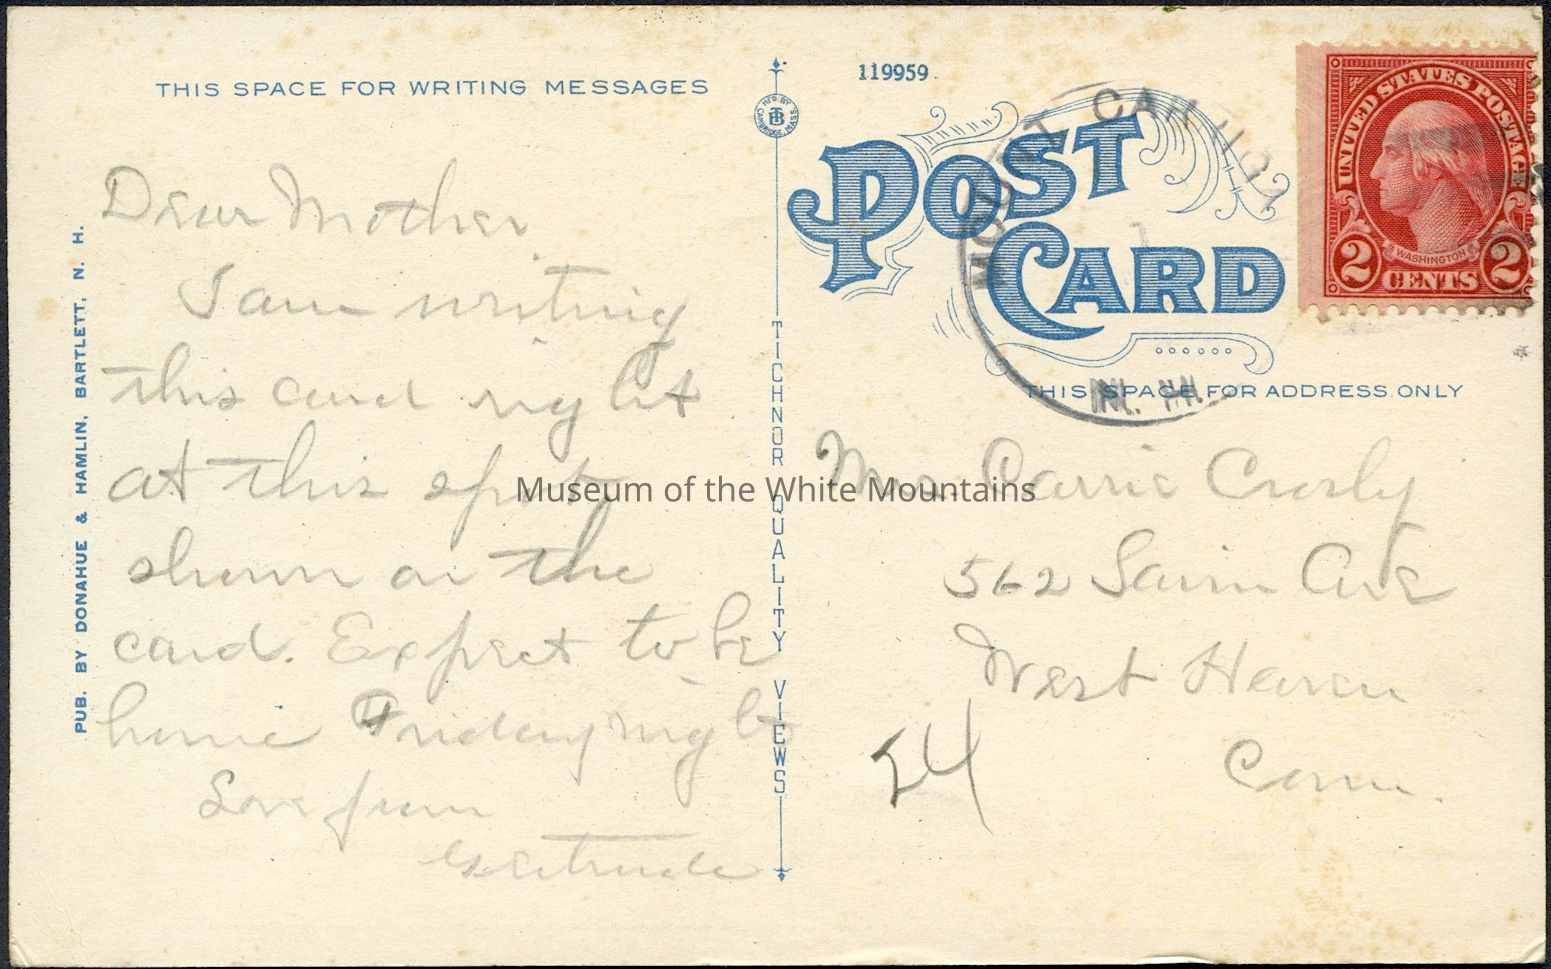 THIS SPACE FOR WRITING MESSAGES
Dear Mother
I am writing
this card right
at this spot
shown on the
card. Expect to be
home Friday night
Love from
Gertrude
PUB. BY DONAHUE & HAMLIN, BARTLETT, N. H.
MF'D BY
TB
CAMBRIDGE, MASS.
TICHNOR QUALITY VIEWS
119959
POST
CARD
MOUNT
N. H.
UNITED STATES POSTAGE
WASHINGTON
2 CENTS 2
THIS SPACE FOR ADDRESS ONLY
Mrs. Carrie Crosby
562 Ave
West Haven
Conn.
54
Museum of the White Mountains